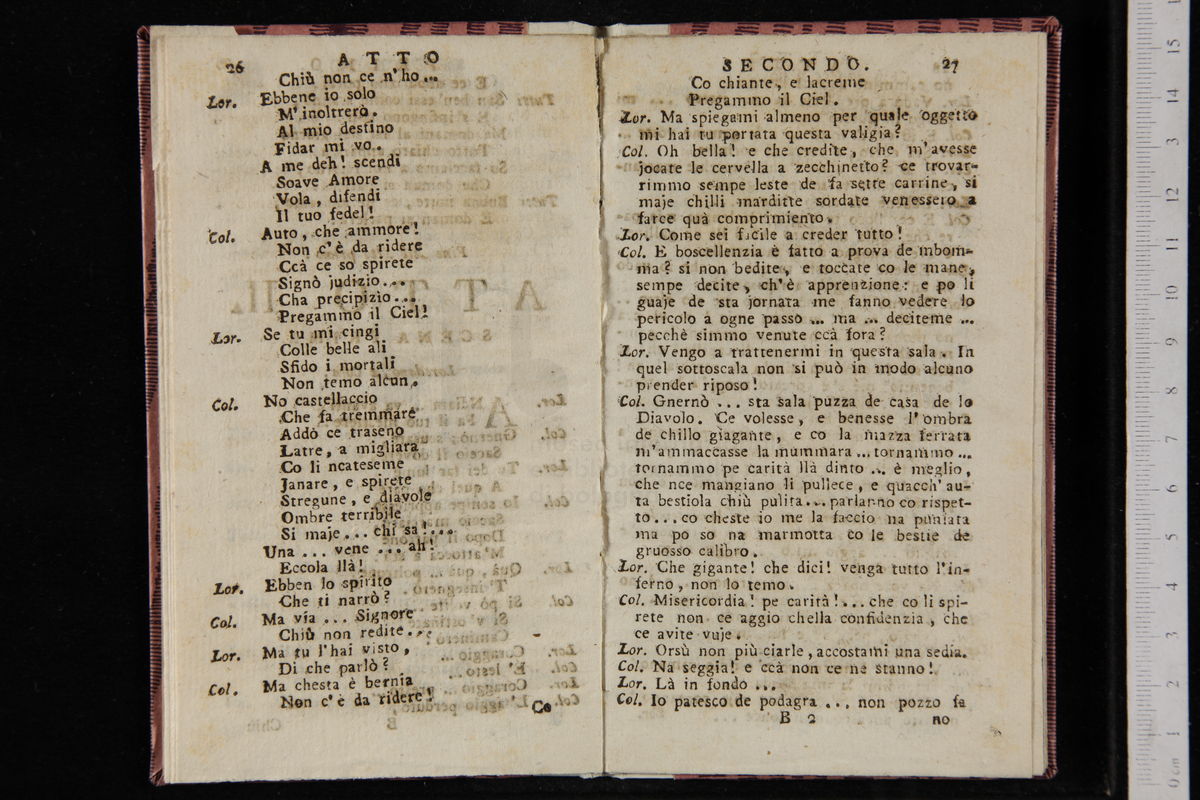 26 ATTO
Chiù non ce n'ho...
Lor. Ebbene io solo
M'inoltrerò.
Al mio destino
Fidar mi vo.
A me deh! scendi
Soave Amore
Vola, difendi
Il tuo fedel!
Col. Auto, che ammore!
Non c'è da ridere
Ccà ce so spirete
Signò judizio...
Cha precipizio...
Pregammo il Ciel!
Lor. Se tu mi cingi
Colle belle ali
Sfido i mortali
Non temo alcun.
Col. No castellaccio
Che fa tremmare
Addò ce traseno
Latre, a migliara
Co li ncateseme
Janare, e spirete
Stregune, e diavole
Ombre terribile
Si maje... chi sa!....
Una ... vene ... ah!
Eccola llà!
Lor. Ebben lo spirito
Che ti narrò?
Col. Ma via ... Signore
Chiù non redite...
Lor. Ma tu l'hai visto,
Di che parlò?
Col. Ma chesta è bernia
Non c'è da ridere!
Co
SECONDO. 27
Co chiante, e lacreme
Pregammo il Ciel.
Lor. Ma spiegami almeno per quale oggetto
mi hai tu portata questa valigia?
Col. Oh bella! e che credite, che m'avesse
jocate le cervella a zecchinetto? ce trovar-
rimmo sempe leste de fa sette carrine, si
maje chilli marditte sordate venessero a
farce quà comprimiento.
Lor. Come sei facile a creder tutto!
Col. E boscellenzia è fatto a prova de mbom-
ma? si non bedite, e toccate co le mane,
sempe decite, ch'è apprenzione: e po li
guaje de sta jornata me fanno vedere lo
pericolo a ogne passo ... ma ... deciteme ...
pecchè simmo venute ccà fora?
Lor. Vengo a trattenermi in questa sala. In
quel sottoscala non si può in modo alcuno
prender riposo!
Col. Gnernò ... sta sala puzza de casa de lo
Diavolo. Ce volesse, e benesse l'ombra
de chillo giagante, e co la mazza ferrata
m'ammaccasse la mummara ... tornammo ...
tornammo pe carità llà dinto ... è meglio,
che nce mangiano li pullece, e quacch'au-
ta bestiola chiù pulita... parlanno co rispet-
to... co cheste io me la faccio na puniata
ma po so na marmotta co le bestie de
gruosso calibro.
Lor. Che gigante! che dici! venga tutto l'in-
ferno, non lo temo.
Col. Misericordia! pe carità!... che co li spi-
rete non ce aggio chella confidenzia, che
ce avite vuje.
Lor. Orsù non più ciarle, accostami una sedia.
Col. Na seggia! e ccà non ce ne stanno!
Lor. Là in fondo ...
Col. Io patesco de podagra ... non pozzo fa
B 2 no